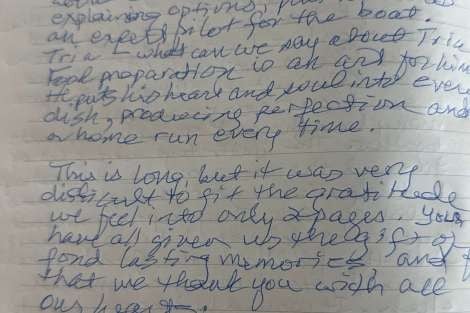 explaining options,
an expert pilot for the boat.
Tria - what can we say about Tria
Food preparation is an art for him
He puts his heart and soul into every
dish, producing perfection and
a home run every time.
This is long, but it was very
difficult to fit the gratitude
we feel into only 2 pages. You
have all given us the gift of
fond lasting memories and f
that we thank you with all
our hearts.